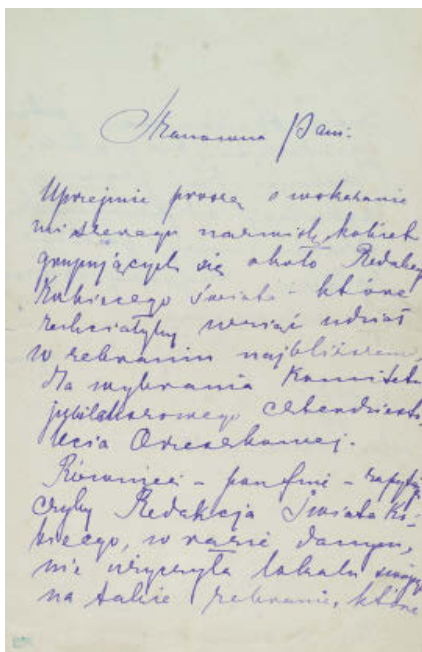 Szanowna Pani!
Uprzejmie proszę o wskazanie
mi szeregu nazwisk kobiet
grupujących się około Redakcyi
Kobiecego świata – które
zechciałyby wziąć udział
w zebraniu najbliższem,
dla wybrania Komitetu
jubileuszowego czterdziesto
lecia Orzeszkowej.
Również – poufnie – zapytuję
czyby Redakcja Świata Ko-
biecego, w razie danym,
nie użyczyła lokalu swego
na takie zebranie, które